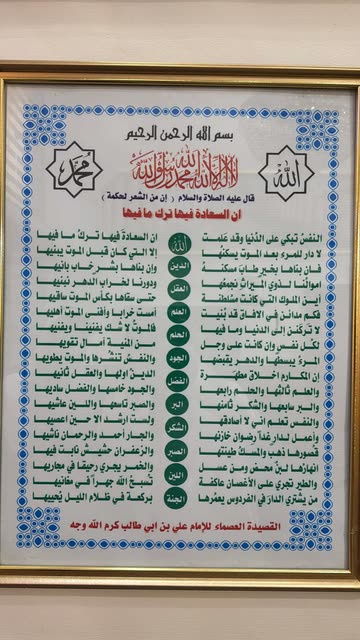 بسم الله الرحمن الرحيم
لا اله الا الله محمد رسول الله
محمد
الله
قال عليه الصلاة والسلام ( إن من الشعر لحكمة )
ان السعادة فيها ترك ما فيها
النفس تبكي على الدنيا وقد علمت ان السعادة فيها ترك ما فيها
لا دار للمرء بعد الموت يسكنها إلا التي كان قبل الموت يبنيها
فإن بناها بخير طاب مسكنه وإن بناها بشر خاب بانيها
أموالنا لذوي الميراث نجمعها ودورنا لخراب الدهر نبنيها
أين الملوك التي كانت مسلطنة حتى سقاها بكأس الموت ساقيها
فكم مدائن في الآفاق قد بنيت أمست خرابا وأفنى الموت أهليها
لا تركنن إلى الدنيا وما فيها فالموت لا شك يفنينا ويفنيها
لكل نفس وإن كانت على وجل من المنية آمال تقويها
المرء يبسطها والدهر يقبضها والنفس تنشرها والموت يطويها
إن المكارم اخلاق مطهرة الدين اولها والعقل ثانيها
والعلم ثالثها والحلم رابعها والجود خامسها والفضل ساديها
والبر سابعها والشكر ثامنها والصبر تاسعها واللين عاشيها
والنفس تعلم اني لا أصادقها ولست ارشد الا حين اعصيها
وأعمل لدار غدا رضوان خازنها والجار أحمد والرحمان ناشيها
قصورها ذهب والمسك طينتها والزعفران حشيش نابت فيها
انهارها لبن محض ومن عسل والخمر يجري رحيقا في مجاريها
والطير تجري على الأغصان عاكفة تسبح الله جهرا في مغانيها
من يشتري الدار في الفردوس يعمرها بركعة في ظلام الليل يحييها
الله
الدين
العقل
العلم
الحلم
الجود
الفضل
البر
الشكر
الصبر
اللين
الجنة
القصيدة العصماء للإمام علي بن ابي طالب كرم الله وجه